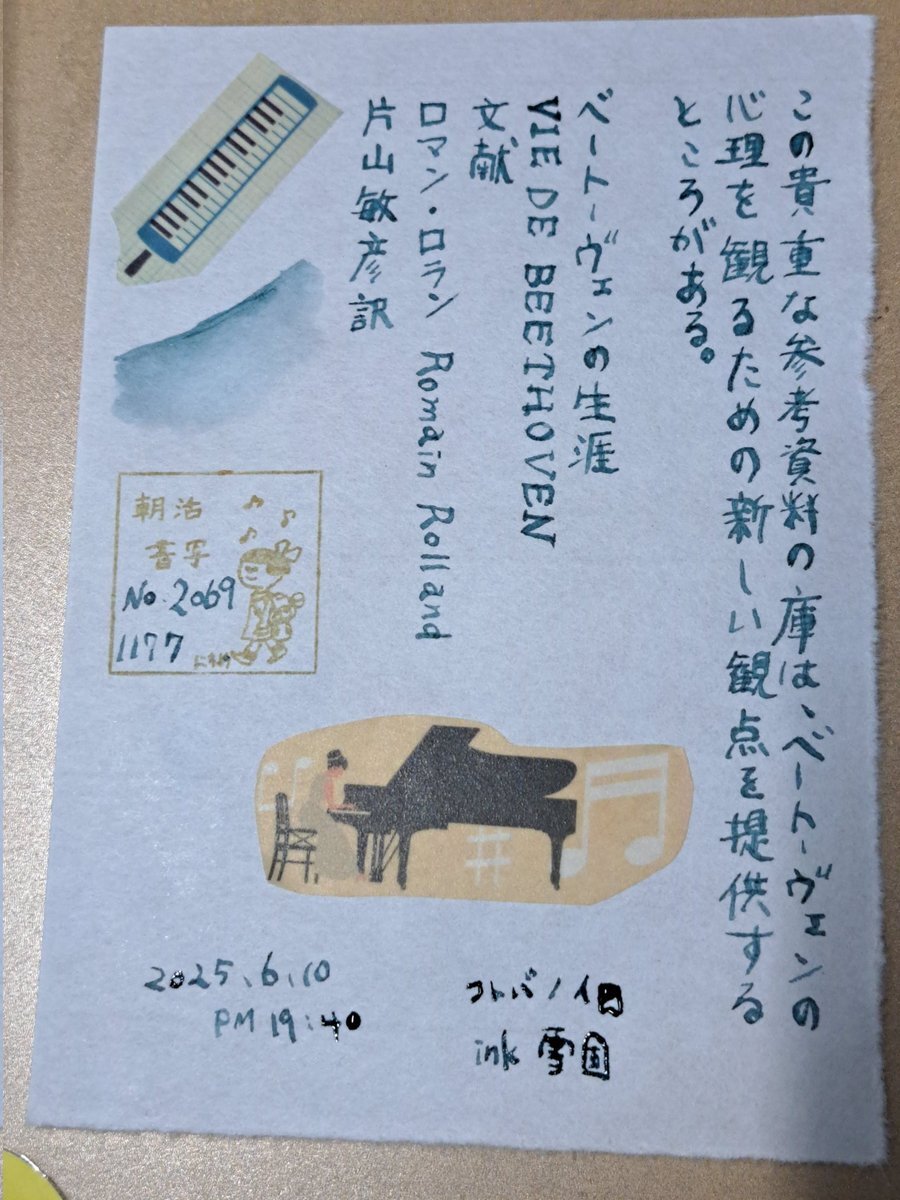 この貴重な参考資料の庫は、ベートーヴェンの
心理を観るための新しい観点を提供する
ところがある。
ベートーヴェンの生涯
VIE DE BEETHOVEN
文献
ロマン・ロラン Romain Rolland
片山敏彦訳
朝活
書写
No.2069
1177
2025.6.10
PM 19:40
コトバノイロ
ink 雪国